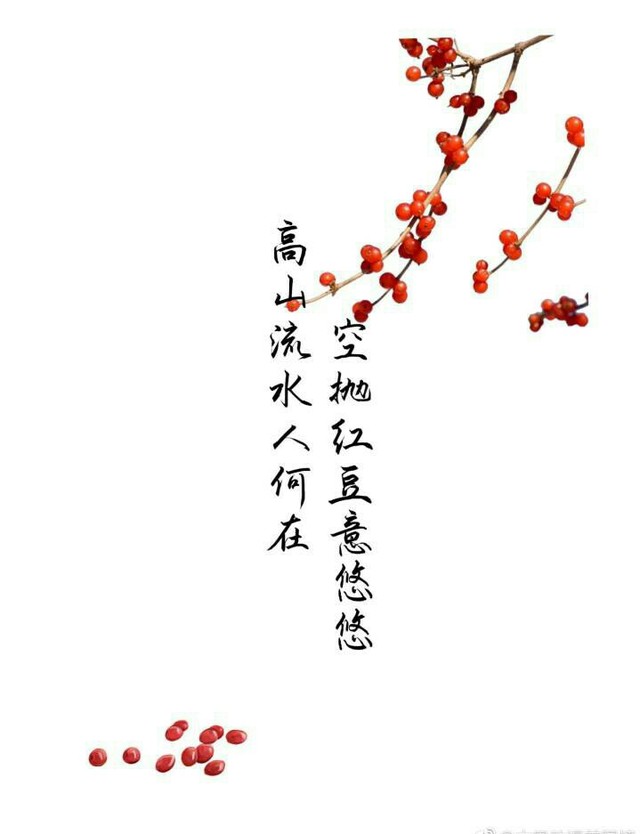 空抛红豆意悠悠
高山流水人何在